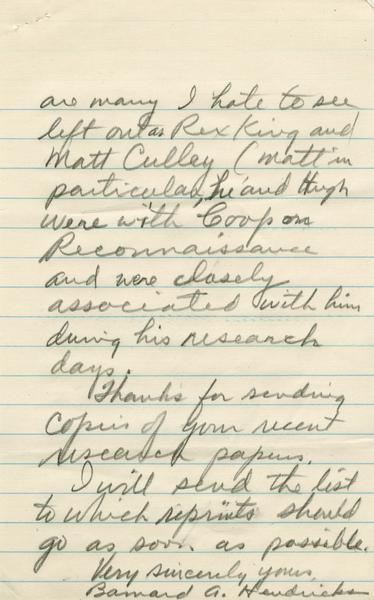 are many I hate to see
left out as Rex King and
Matt Culley (Matt in
particular, he and Hugh
were with Coop on
Reconnaissance
and were closely
associated with him
during his research
days.
Thanks for sending
copies of your recent
research papers.
I will send the list
to which reprints should
go as soon as possible.
Very sincerely yours,
Barnard A. Hendricks